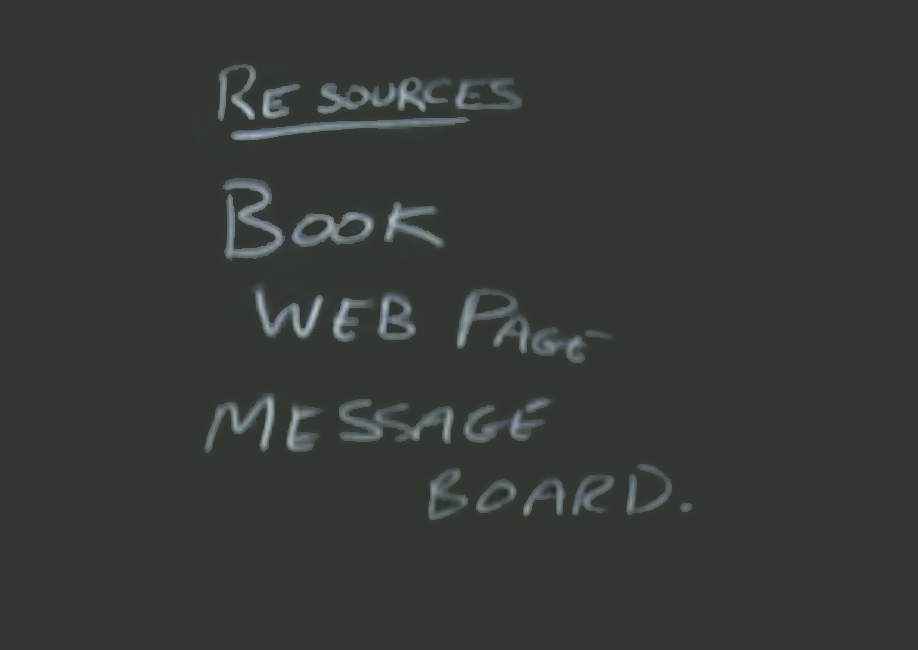 RESOURCES
BOOK
WEB PAGE
MESSAGE
BOARD.